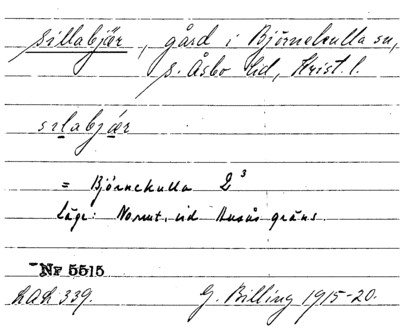 Sillabjär, gård i Björnekulla sn,
S. Åsbo hd, Krist. l.
sɩlabjǽr
= Björnekulla 2³
Läge: Norrut, vid gräns.
Nr 5515
LAL 339. G. Billing 1915-20.